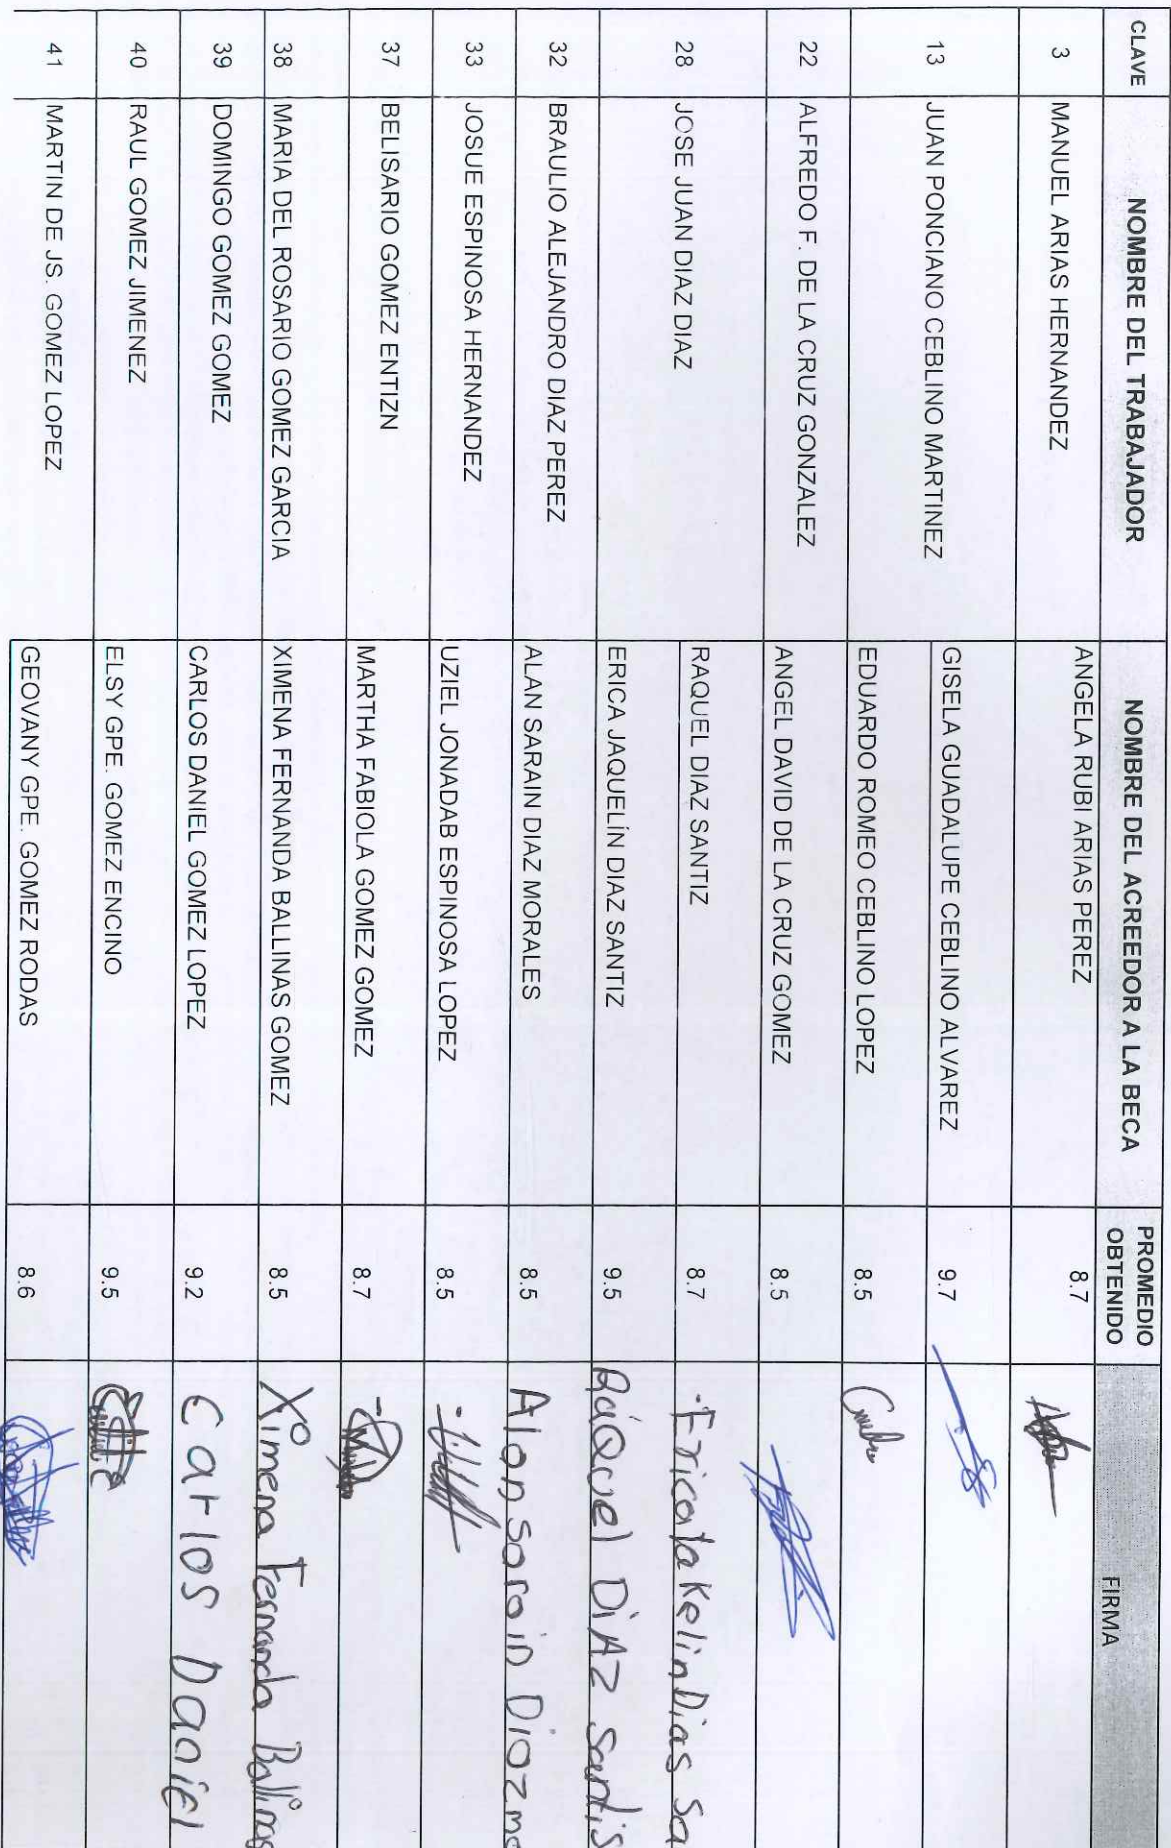 CLAVE NOMBRE DEL TRABAJADOR NOMBRE DEL ACREEDOR A LA BECA PROMEDIO OBTENIDO FIRMA
3 MANUEL ARIAS HERNANDEZ ANGELA RUBI ARIAS PEREZ 8.7
13 JUAN PONCIANO CEBLINO MARTINEZ GISELA GUADALUPE CEBLINO ALVAREZ 9.7
EDUARDO ROMEO CEBLINO LOPEZ 8.5
22 ALFREDO F. DE LA CRUZ GONZALEZ ANGEL DAVID DE LA CRUZ GOMEZ 8.5
28 JOSE JUAN DIAZ DIAZ RAQUEL DIAZ SANTIZ 8.7 Erica Ja Kelin Dias Sa
ERICA JAQUELÍN DIAZ SANTIZ 9.5 RáQuel DiAZ Santis
32 BRAULIO ALEJANDRO DIAZ PEREZ ALAN SARAIN DIAZ MORALES 8.5 Alan Sarain Diaz mo
33 JOSUE ESPINOSA HERNANDEZ UZIEL JONADAB ESPINOSA LOPEZ 8.5
37 BELISARIO GOMEZ ENTIZN MARTHA FABIOLA GOMEZ GOMEZ 8.7
38 MARIA DEL ROSARIO GOMEZ GARCIA XIMENA FERNANDA BALLINAS GOMEZ 8.5 Ximena Fernanda Ballinas
39 DOMINGO GOMEZ GOMEZ CARLOS DANIEL GOMEZ LOPEZ 9.2 Carlos Daniel
40 RAUL GOMEZ JIMENEZ ELSY GPE. GOMEZ ENCINO 9.5
41 MARTIN DE JS. GOMEZ LOPEZ GEOVANY GPE. GOMEZ RODAS 8.6